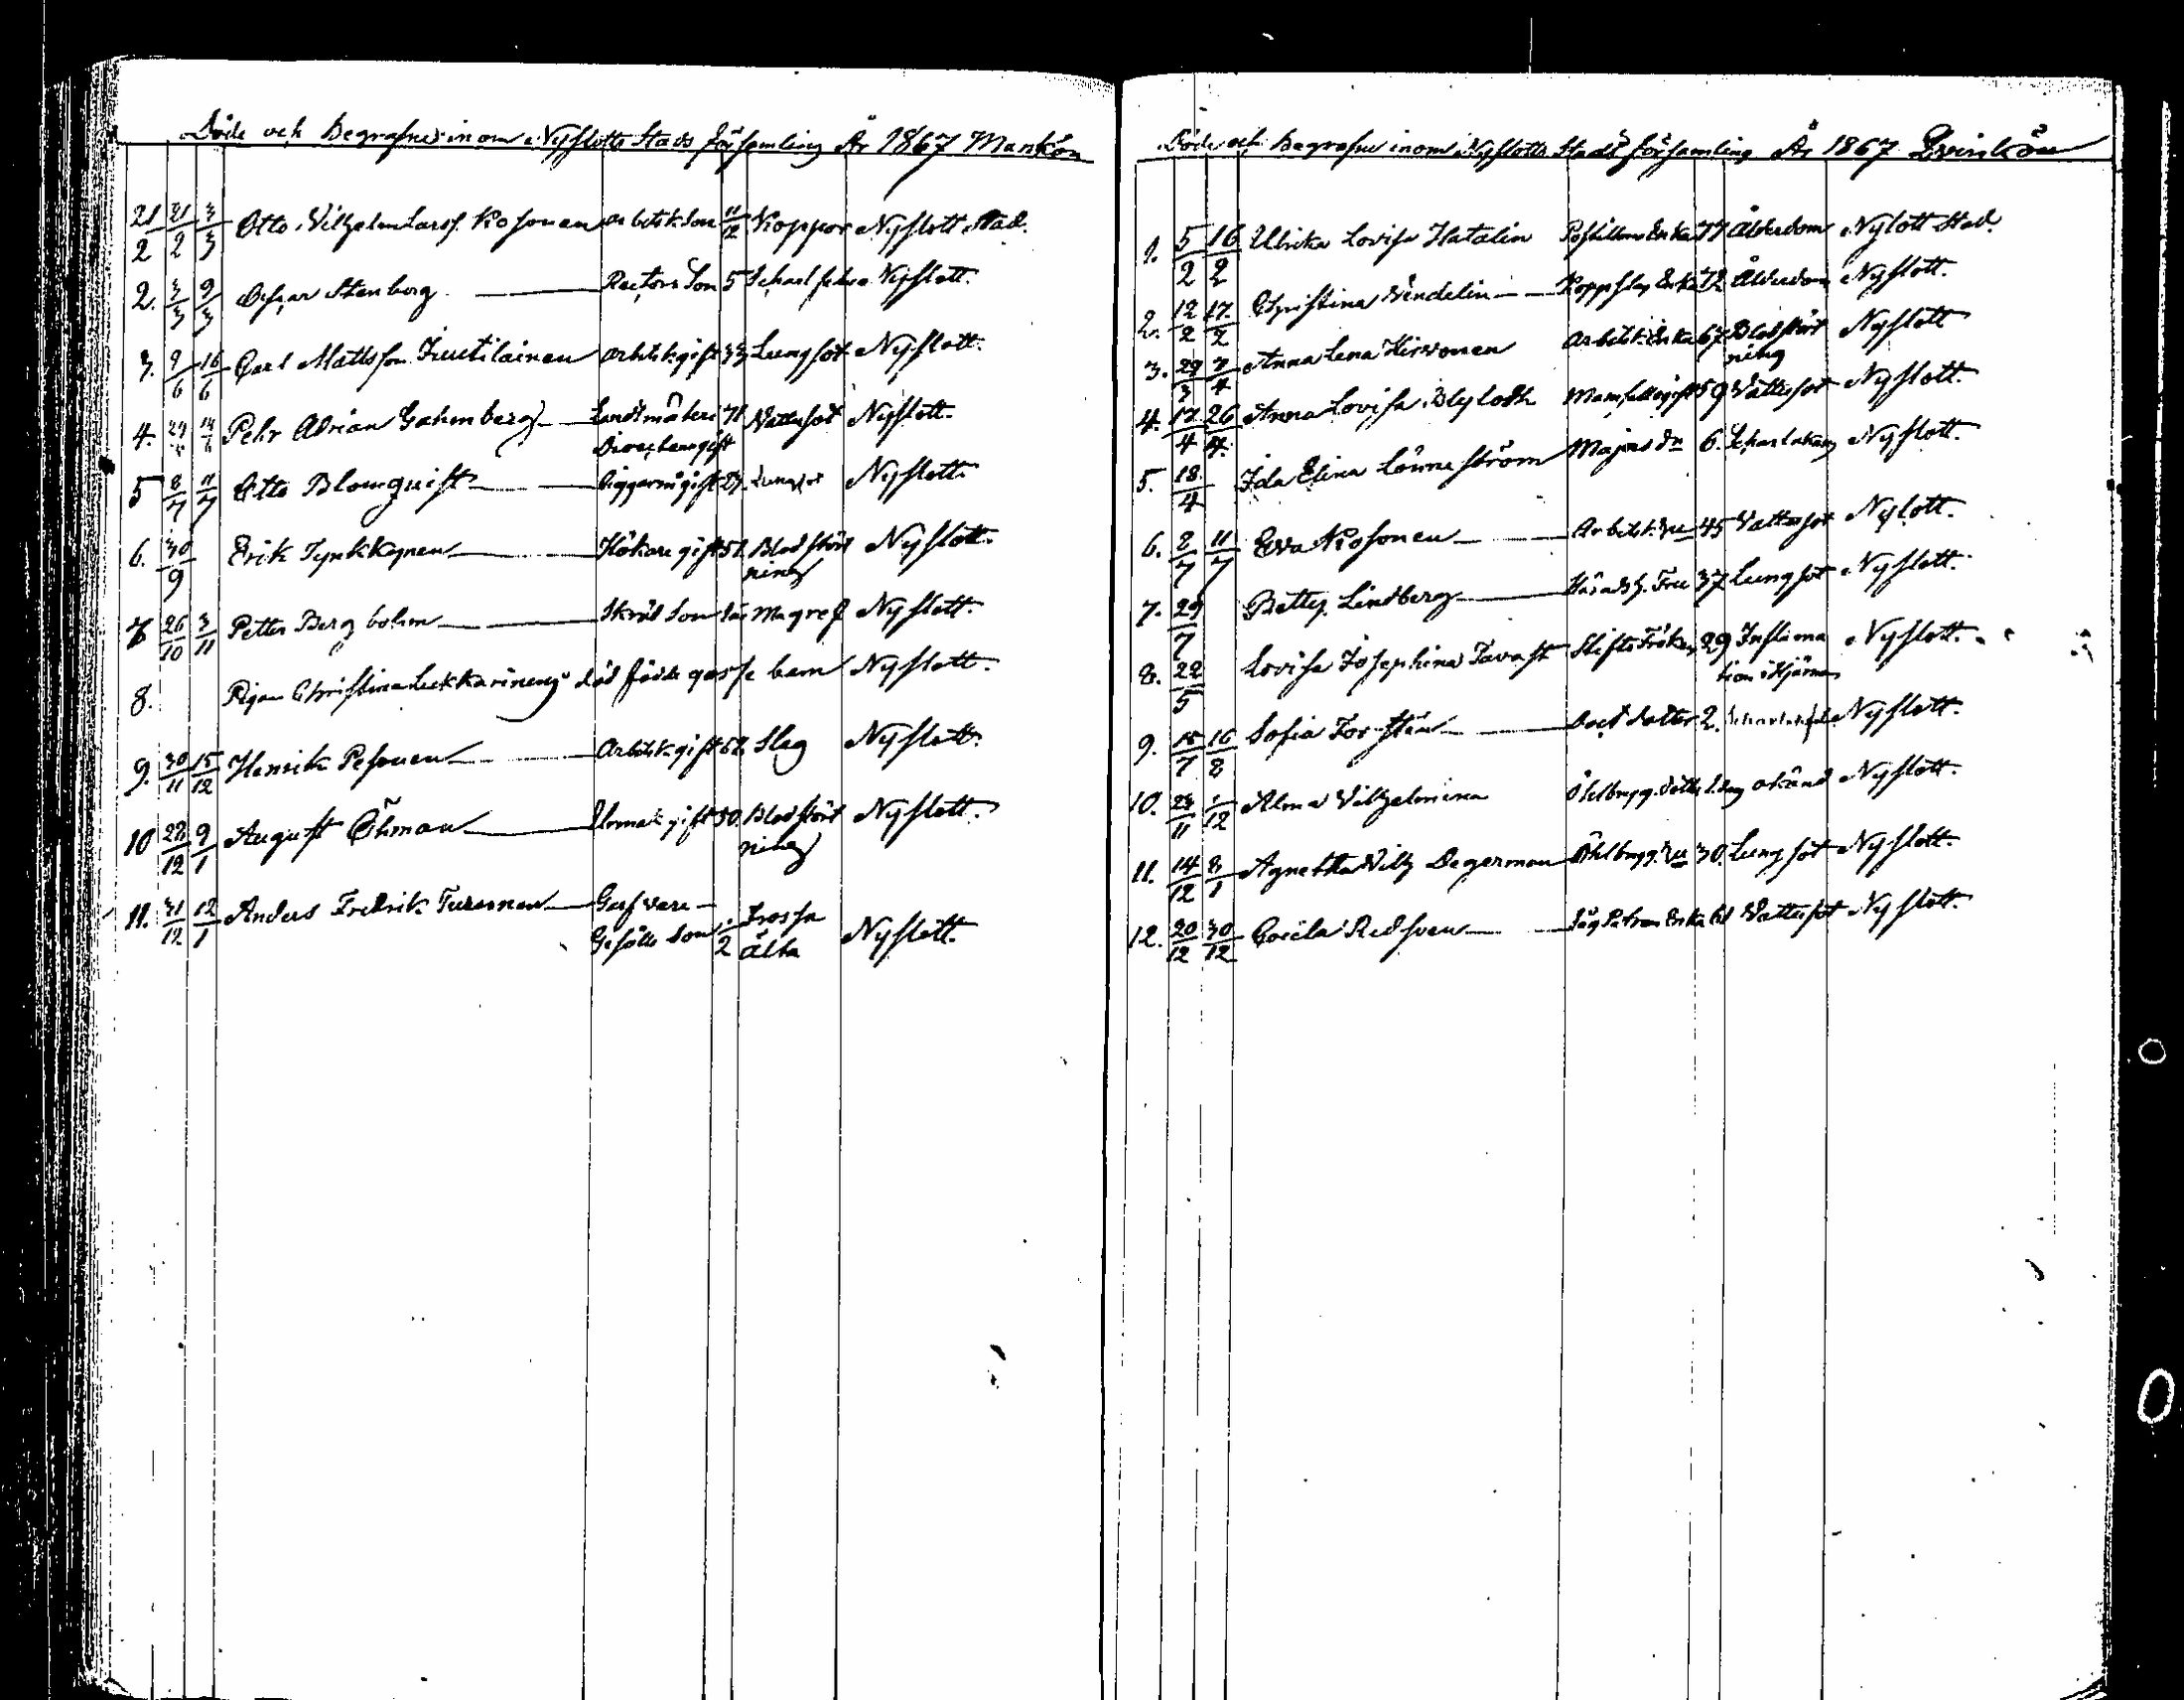 Döde och Begrafne inom Nyslotts Stads församling År 1867 Mankön
21/2 21/2 3/3 Otto Vilhelm Larss. Kosonen arbetsk. Son 11/12 Koppor Nyslott Stad.
2. 3/3 9/3 Oscar Stenberg Rectors Son 5 Scharl. feber Nyslott.
3. 9/6 16/6 Carl Mattsson Juutilainen arbetsk. gift 33 Lungsot Nyslott.
4. 29 14 Pehr Adrian Gahmberg Landtmäteri 71 Vattusot Nyslott.
Direcheur gift
5 8/7 11/7 Otto Blomquist gift 27. Lungsot Nyslott.
6. 30/9 Erik Tynkkynen Hökare gift 51. Blodstört Nyslott.
ning
7 26/10 3/11 Petter Bergbohm Skräd. Son Magref Nyslott.
8. Christina Lukkarinens död födde gosse barn Nyslott.
9. 30/11 15/12 Henrik Pesonen Arbetsk. gift 52. Slag Nyslott.
10 28/12 9/1 August Öhman Urmak. gift 50. Blodstört Nyslott.
ning
11. 31/12 12/1 Anders Fredrik Turunen Garfvare-
Gesälls Son 1/2 Frossa Nyslott.
älta
Döde och Begrafne inom Nyslotts Stads församling År 1867 Qvinkön
1. 5/2 16/2 Ulrika Lovisa Hatalin Postillions Enka 77 Ålderdom Nyslott Stad.
2. 12/2 17/2 Christina Wendelin Koppslag. Enka 72 Ålderdom Nyslott.
3. 29/3 7/4 Anna Lena Hirvonen Arbetsk. Enka 67 Blodstört Nyslott
ning
4. 17/4 26/4 Anna Lovisa Blyloth Mamsell ogift 59 Vattusot Nyslott.
5. 18/4 Ida Elina Lönneström Majors dr 6. Scharlakans Nyslott.
6. 8/7 11/7 Eva Kosonen Arbetsk. Hu 45 Vattusot Nyslott.
7. 29/7 Betty Lindberg Häradsh. Fru 37 Lungsot Nyslott.
8. 22/5 Lovisa Josephina Tavast Stifts Fröken 29 Inflama Nyslott.
tion i Hjärnan
9. 15/7 16/8 Sofia Forstén Doct. dotter 2. Nyslott.
10. 24/11 1/12 Alma Vilhelmina Öhlbrygg. dotter 1 dag okänd Nyslott.
11. 14/12 8/1 Agnetha Vilh. Degerman Öhlbrygg. Hu 30. Lungsot Nyslott.
12. 20/12 30/12 Cecila Redsven Enka 61 Vattusot Nyslott.